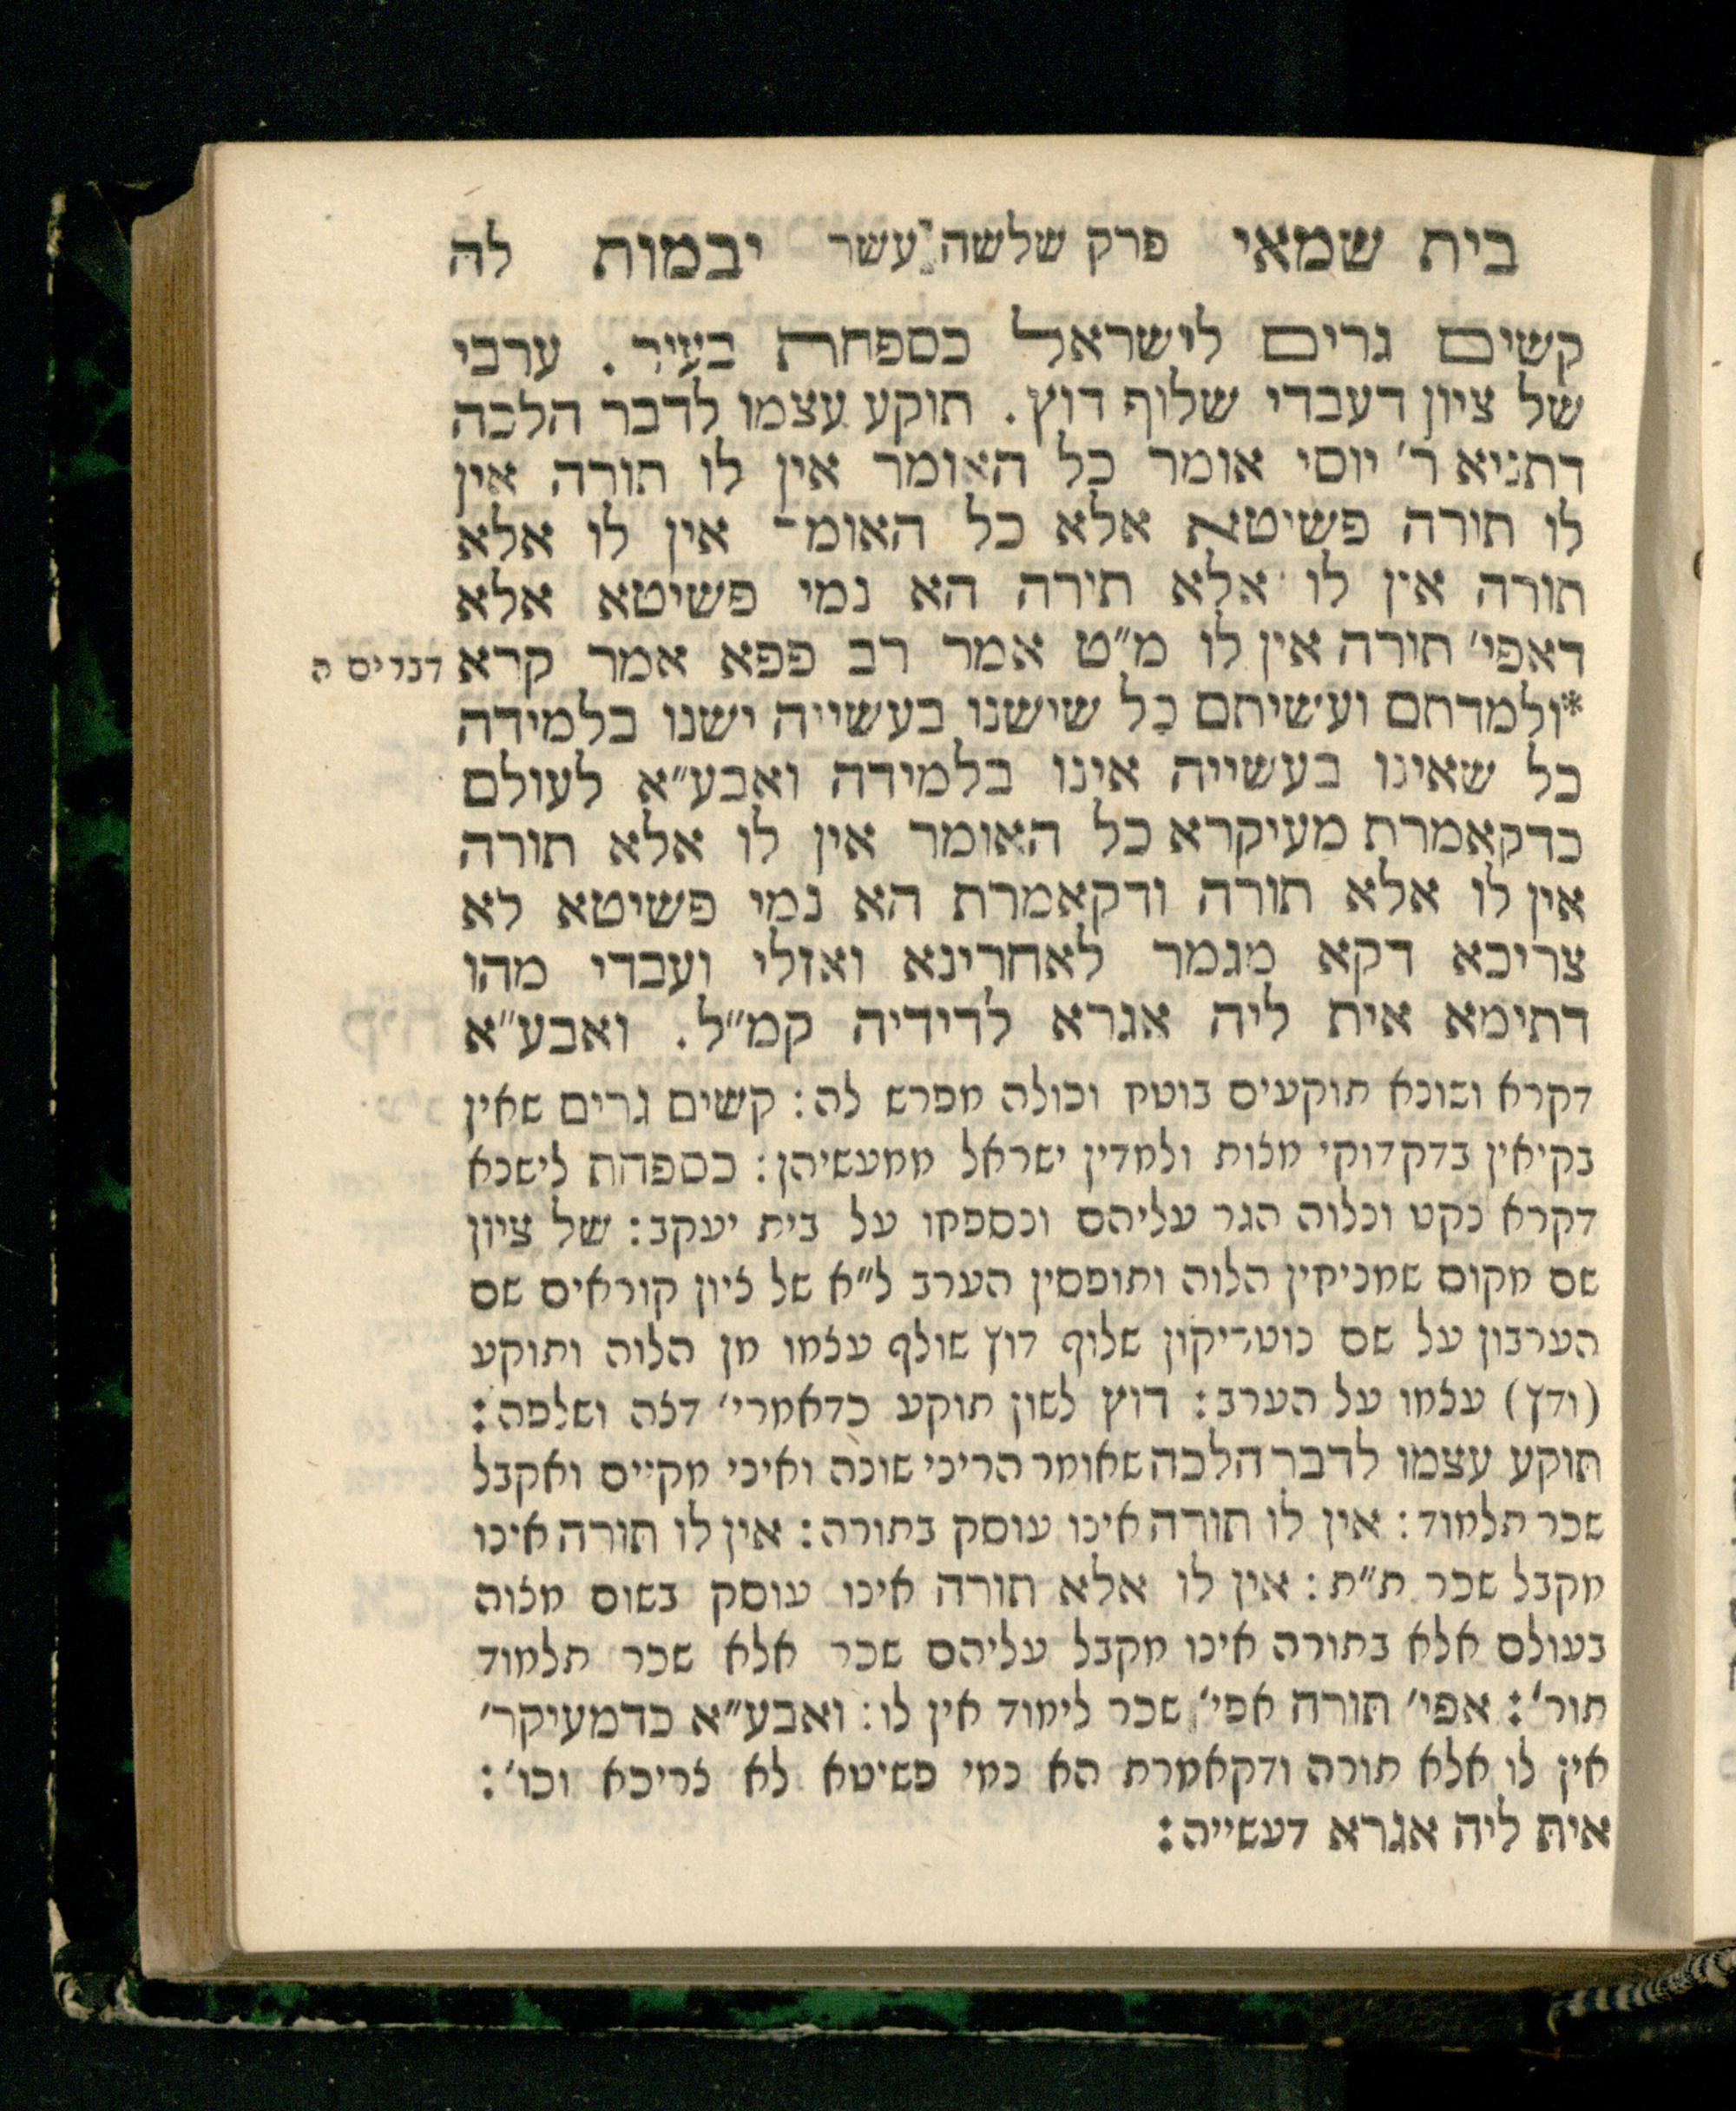 בית שמאי פרק שלשה עשר יבמות לה
קשים גרים לישראל כספחת בעור. ערבי
של ציון דעבדי שלוף דוץ. תוקע עצמו לדבר הלכה
דתניא ר׳ יוסי אומר כל האומר אין לו תורה אין
לו תורה פשיטא אלא כל האומר אין לו אלא
תורה אין לו אלא תורה הא נמי פשיטא אלא
דאפי׳ תורה אין לו מ״ט אמר רב פפא אמר קרא
דברים ה
*ולמדתם ועשיתם כל שישנו בעשייה ישנו בלמידה
כל שאינו בעשייה אינו בלמידה ואבע״א לעולם
כדקאמרת מעיקרא כל האומר אין לו אלא תורה
אין לו אלא תורה ודקאמרת הא נמי פשיטא לא
צריכא דקא מגמר לאחרינא ואזלי ועבדי מהו
דתימא אית ליה אגרא לדידיה קמ״ל. ואבע״א
דקרא ושונא תוקעים בוטח וכולה מפרש לה: קשים גרים שאין
בקיאין בדקדוקי מצות ולמדין ישראל ממעשיהן: כספחת לישנא
דקרא נקט ונלוה הגר עליהם ונספחו על בית יעקב: של ציון
שם מקום שמניחין הלוה ותופסין הערב ל״א של ציון קוראים שם
הערבון על שם נוטריקון שלוף דוץ שולף עצמו מן הלוה ותוקע
(ודץ) עצמו על הערב: דוץ לשון תוקע כדאמרי׳ דצה ושלפה:
תוקע עצמו לדבר הלכה שאומר הריני שונה ואיני מקיים ואקבל
שכר תלמוד: אין לו תורה אינו עוסק בתורה: אין לו תורה אינו
מקבל שכר ת״ת: אין לו אלא תורה אינו עוסק בשום מצוה
בעולם אלא בתורה אינו מקבל עליהם שכר אלא שכר תלמוד
תור׳: אפי׳ תורה אפי׳ שכר לימוד אין לו: ואבע״א כדמעיקר׳
אין לו אלא תורה ודקאמרת הא נמי פשיטא לא צריכא וכו׳:
אית ליה אגרא דעשייה: